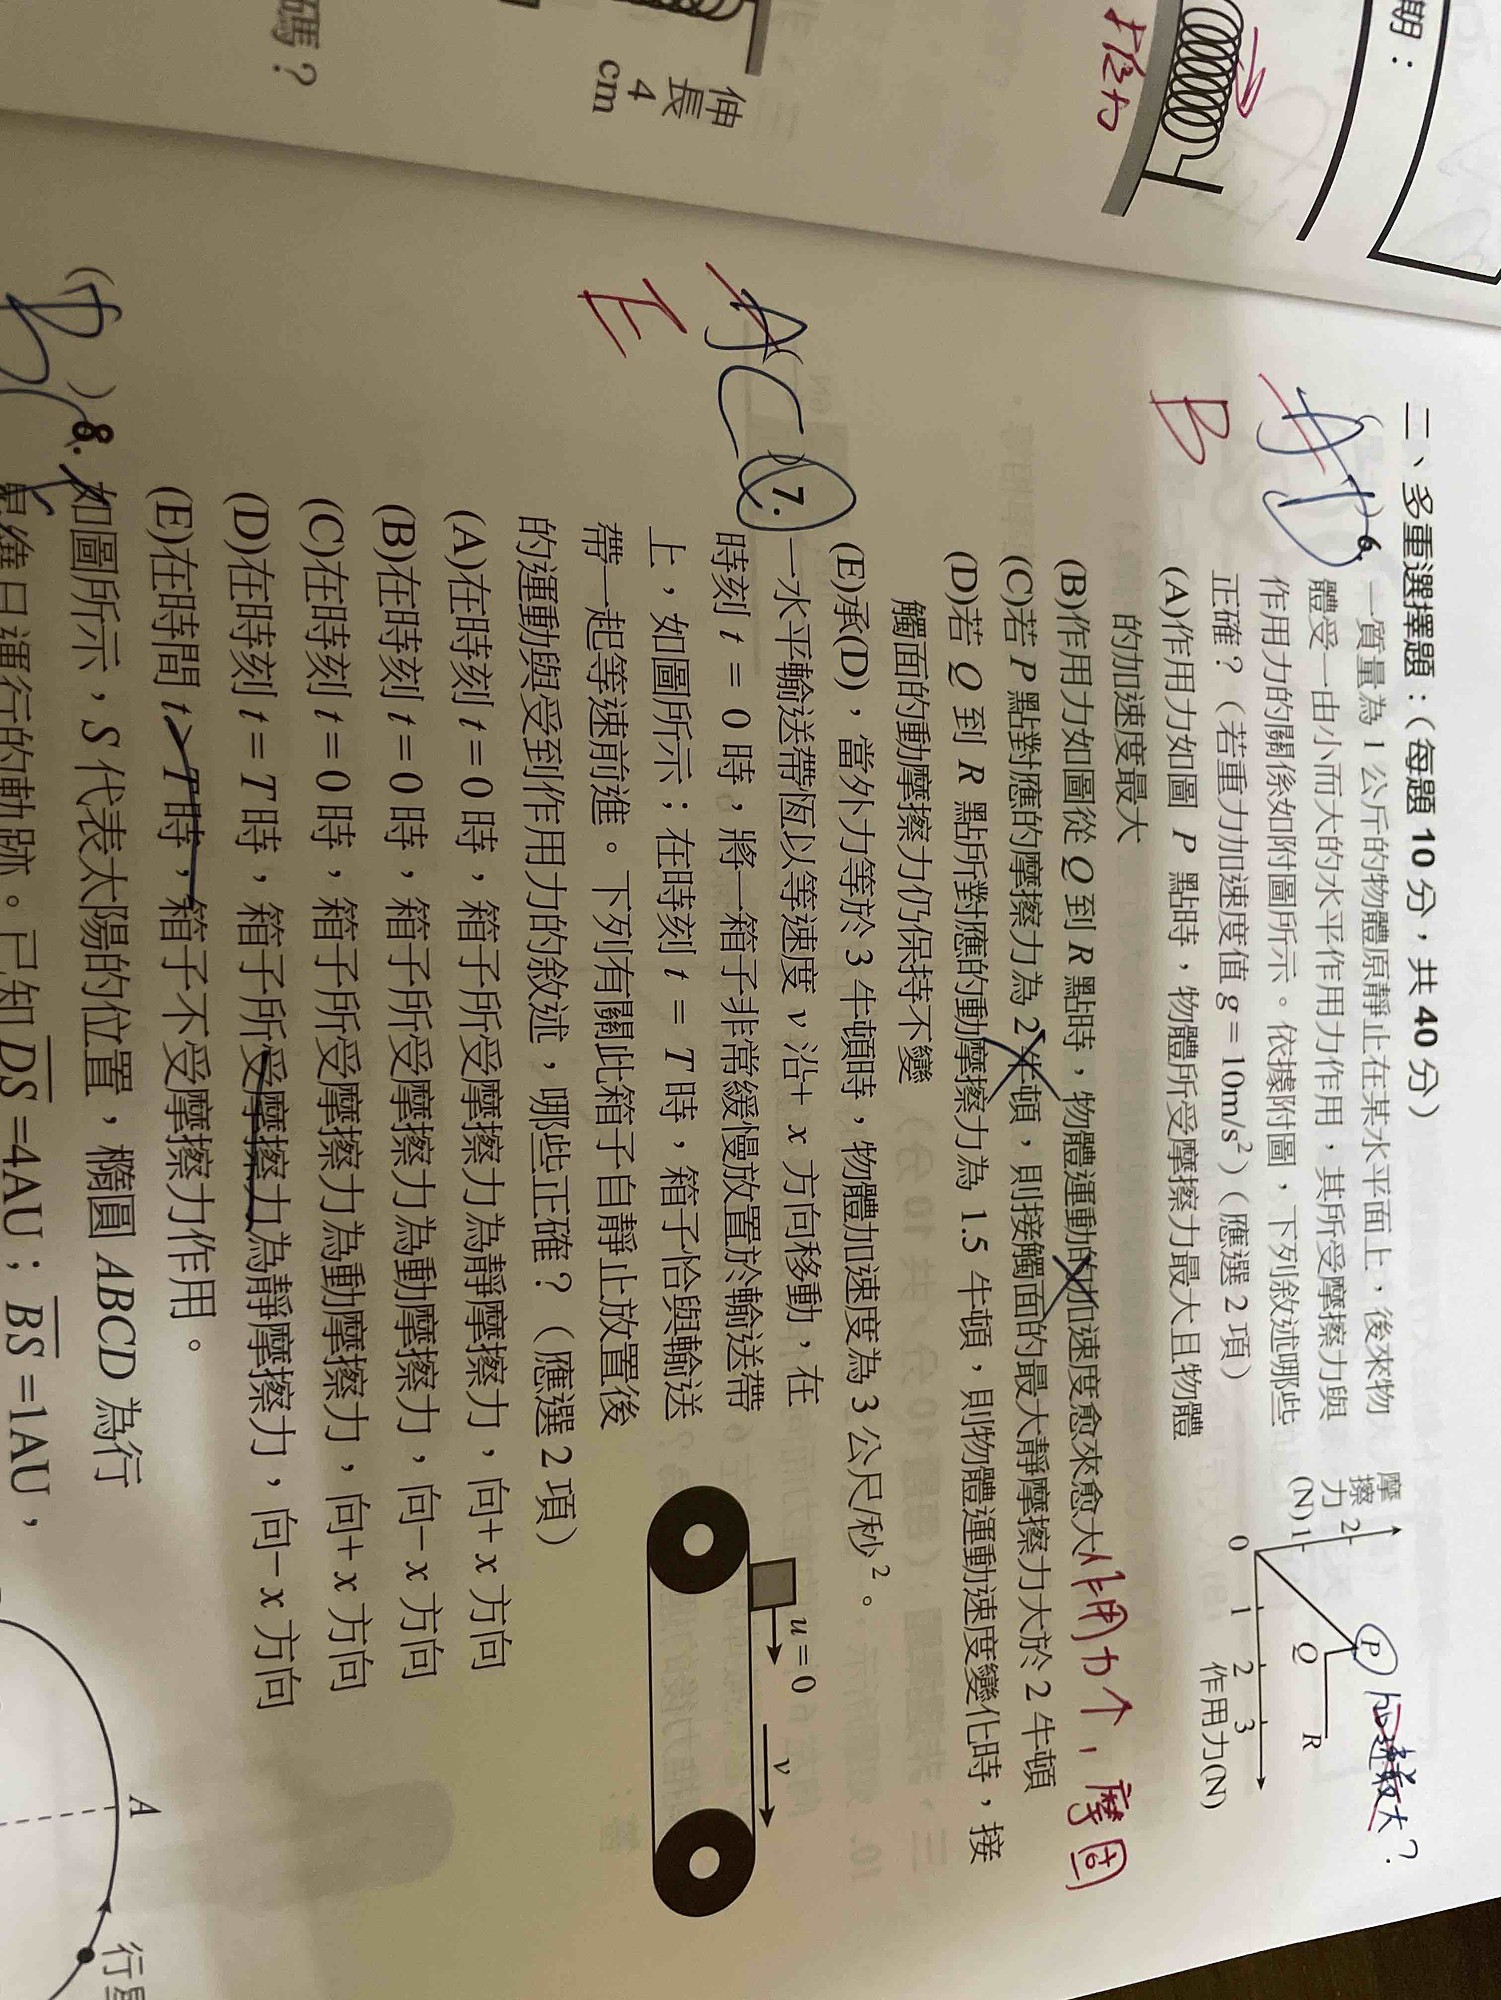 期：
拉力
伸長 4 cm
碼？
二、多重選擇題：（每題 10 分，共 40 分）
AD 6. 一質量為 1 公斤的物體原靜止在某水平面上，後來物
B
體受一由小而大的水平作用力作用，其所受摩擦力與
作用力的關係如附圖所示。依據附圖，下列敘述哪些
正確？（若重力加速度值 g = 10m/s²）（應選 2 項）
(A)作用力如圖 P 點時，物體所受摩擦力最大且物體
的加速度最大
(B)作用力如圖從 Q 到 R 點時，物體運動的加速度愈來愈大 作用力↑，摩固
(C)若 P 點對應的摩擦力為 2 牛頓，則接觸面的最大靜摩擦力大於 2 牛頓
(D)若 Q 到 R 點所對應的動摩擦力為 1.5 牛頓，則物體運動速度變化時，接
觸面的動摩擦力仍保持不變
(E)承(D)，當外力等於 3 牛頓時，物體加速度為 3 公尺/秒²。
摩擦力(N)
2
1
0 1 2 3
作用力(N)
P
Q
R
加速度大？
AC )7. 一水平輸送帶恆以等速度 v 沿+ x 方向移動，在
E
時刻 t = 0 時，將一箱子非常緩慢放置於輸送帶
上，如圖所示；在時刻 t = T 時，箱子恰與輸送
帶一起等速前進。下列有關此箱子自靜止放置後
的運動與受到作用力的敘述，哪些正確？（應選 2 項）
(A)在時刻 t = 0 時，箱子所受摩擦力為靜摩擦力，向+ x 方向
(B)在時刻 t = 0 時，箱子所受摩擦力為動摩擦力，向- x 方向
(C)在時刻 t = 0 時，箱子所受摩擦力為動摩擦力，向+ x 方向
(D)在時刻 t = T 時，箱子所受摩擦力為靜摩擦力，向- x 方向
(E)在時間 t > T 時，箱子不受摩擦力作用。
u = 0
v
( ) 8. 如圖所示，S 代表太陽的位置，橢圓 ABCD 為行
星繞日運行的軌跡。已知 DS =4AU；BS =1AU，
A
行星